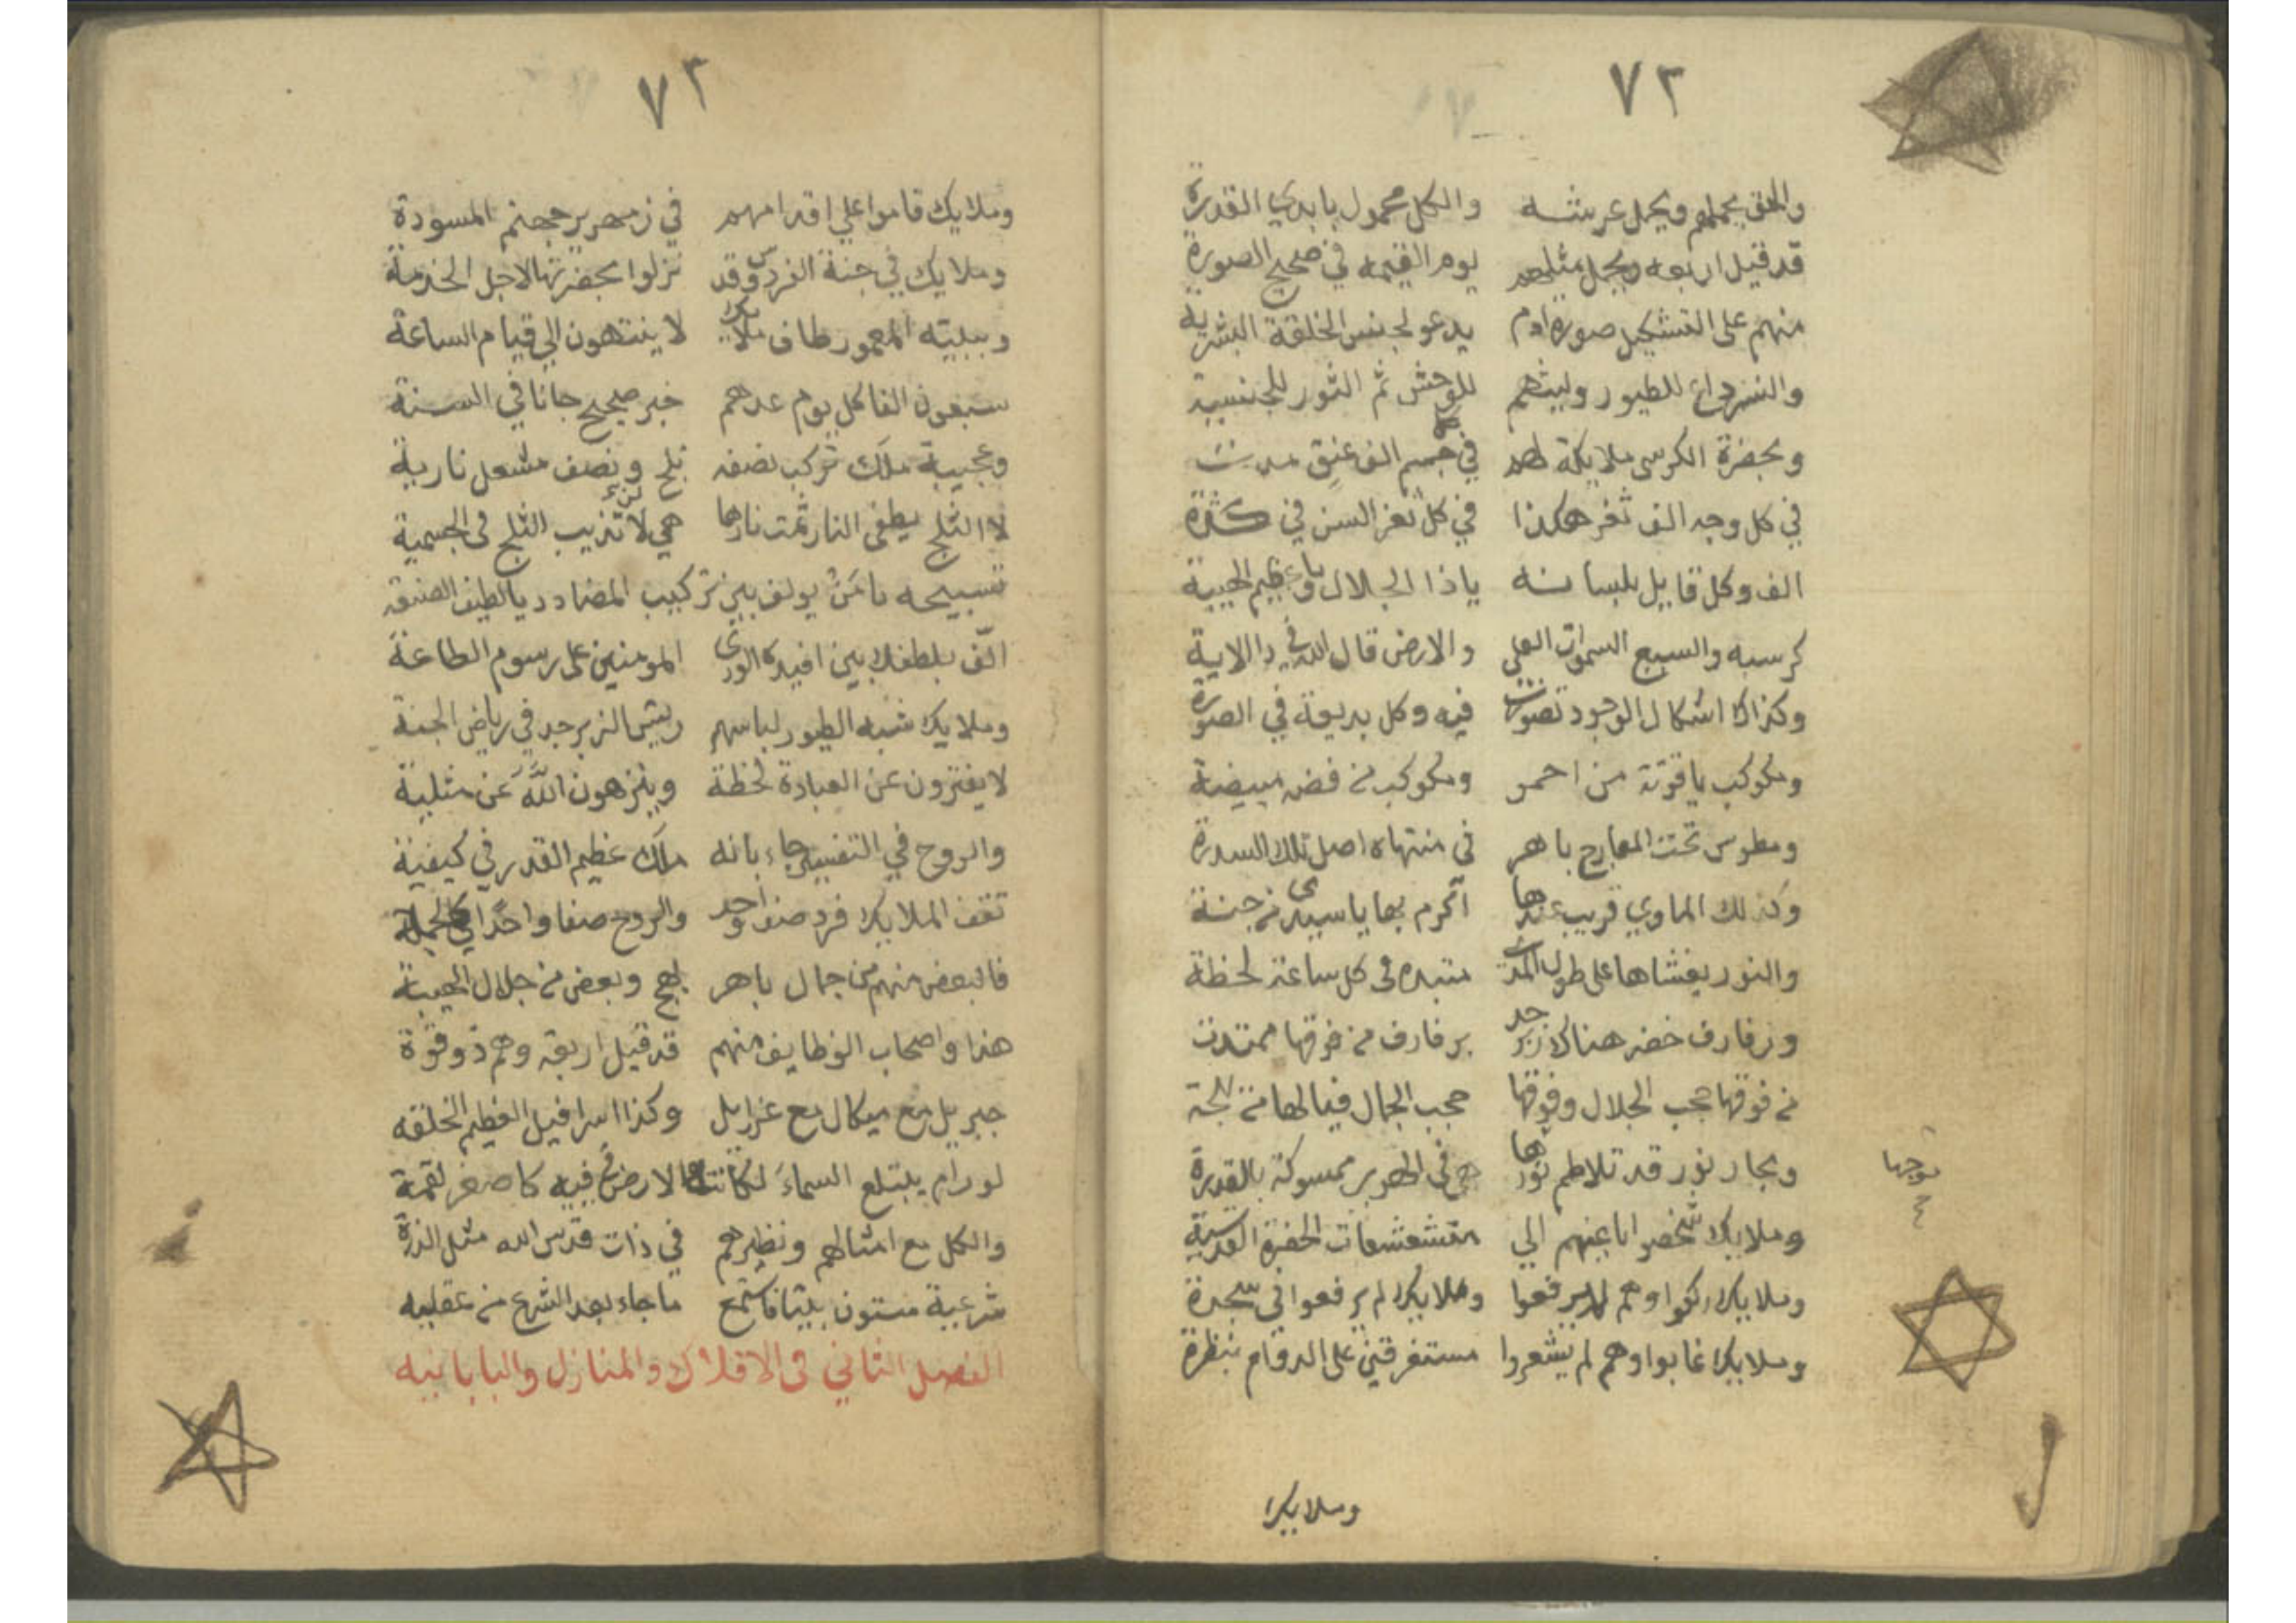 ٧٣
والحق يحملهم ويحمل عرشه والكل محمول بايدي القدرة
قد قيل اربعه ويحمل مثلهم يوم القيمه في صحيح الصورة
منهم على التشكيل صورة ادم يدعو لجنس الخلقة البشرية
والنسر داع للطيور وليثهم للوحش ثم الثور للجنسية
وبحضرة الكرسى ملايكة لهم في جسم الف عنق مدت
في كل وجه الف ثغر هكذا في كل ثغر السن في كثرة
الف وكل قايل بلسانه ياذا الجلال ويا عظيم الهيبة
كرسيه والسبع السموات العلى والارض قال الله في ذا الاية
وكذاك اشكال الوجود تصورت فيه وكل بديعة في الصورة
ومكوكب ياقوتة من احمر ومكوكب من فضه مبيضة
ومطوس تحت المعارج باهر في منتهاه اصل تلك السدرة
وكذلك الماوي قريب عندها اكرم بها ياسيدى من جنة
والنور يغشاها على طول المدى متبده فى كل ساعة لحظة
ورفارف خضر هناك زبرجد برفارف من فوقها ممتدت
من فوقها حجب الجلال وفوقها حجب الجمال فيالها من بهجة
وبحار نور قد تلاطم نورها هي في الهوي ممسوكة بالقدرة
موجها
وملايك شخصوا باعينهم الي متشعشعات الحضرة القدسية
وملايك ركعوا وهم لم يرفعوا وملايك لم يرفعوا في سجدة
وملايك غابوا وهم لم يشعروا مستغرقين على الدوام بنظرة
وملايك
٧٣
وملايك قاموا علي اقدامهم في زمهرير جهنم المسودة
وملايك في جنة الفردوس وقد نزلوا بحضرتها لاجل الخدمة
وببيته المعمور طاف ملايك لا ينتهون الي قيام الساعة
سبعون الفا كل يوم عدهم خبر صحيح جانا في السنة
وعجيبة ملك تركب نصفه ثلج ونصف مشعل نارية
لا الثلج يطفى النار ثمت نارها هي لا تذيب الثلج فى الجسمية
تسبيحه يا من يولف بين تركيب المضادد يا لطيف الصنعة
الف بلطفك بين افيدة الورى المومنين على رسوم الطاعة
وملايك شبه الطيور لباسهم ريش الزبرجد في رياض الجنة
لا يفترون عن العبادة لحظة وينزهون الله عن مثلية
والروح في التفسير جاء بانه ملك عظيم القدر في كيفية
تقف الملايك فرد صف واحد والروح صفا واحدا كالجملة
فالبعض منهم من جمال باهر بهج وبعض من جلال الهيبة
هذا واصحاب الوظايف منهم قد قيل اربعة وهم ذو قوة
جبريل مع ميكال مع عزرايل وكذا اسرافيل العظيم الخلقه
لو رام يبتلع السماء لكانت الارض في فيه كاصغر لقمة
والكل مع امثالهم ونظيرهم في ذات قدس الله مثل الذرة
شرعية ستون بيتا فاستمع ما جاء بعد الشرع من عقليه
الفصل الثاني فى الافلاك والمنازل والبابانيه